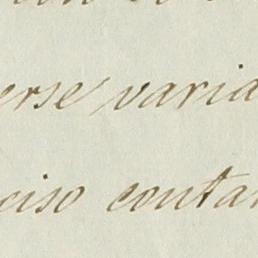 erse varia
ciso contan